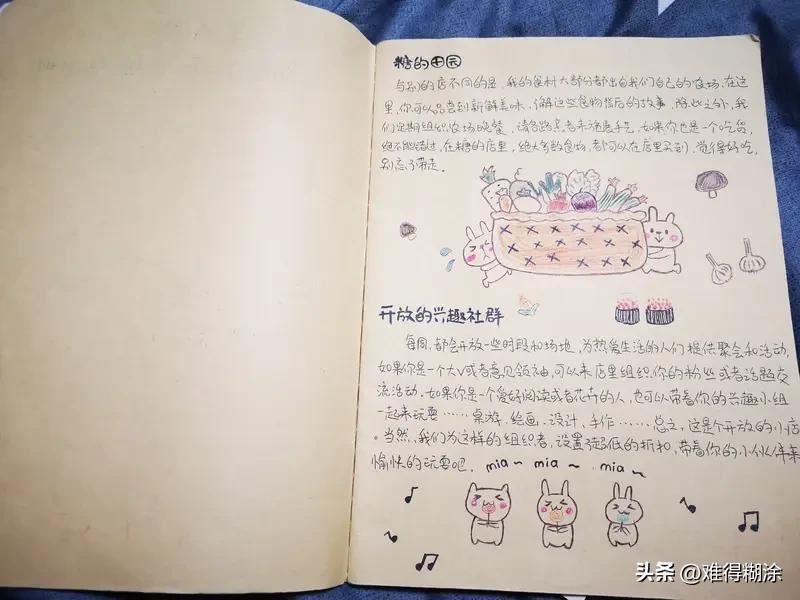 糖的田园
与别的店不同的是,我的食材大部分都出自我们自己的农场,在这
里,你可以品尝到新鲜美味,了解这些食物背后的故事,除此之外,我
们定期组织农场晚餐,请各路高手来施展手艺,如果你也是一个吃货,
绝不能错过,在糖的店里,绝大多数食物,都可以在店里买到,觉得好吃,
别忘了带走。
开放的兴趣社群
每周,都会开放一些时段和场地,为热爱生活的人们提供聚会和活动,
如果你是一个大V或者意见领袖,可以来店里组织你的粉丝或者话题交
流活动.如果你是一个爱好阅读或者花卉的人,也可以带着你的兴趣小组
一起来玩耍……桌游、绘画、设计、手作……总之,这是个开放的小店
。当然,我们为这样的组织者,设置了超低的折扣,带着你的小伙伴来
愉快的玩耍吧.
mia~ mia~ mia~
头条 @难得糊涂